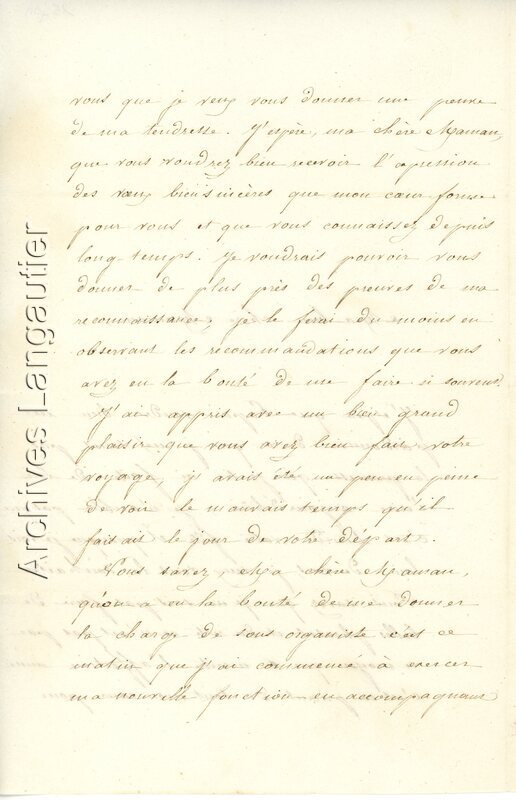 vous que je veux vous donner une preuve
de ma tendresse. J'espère, ma chère Maman,
que vous voudrez bien recevoir l'expression
des vœux bien sincères que mon cœur forme
pour vous et que vous connaissez depuis
long-temps. Je voudrais pouvoir vous
donner de plus près des preuves de ma
reconnaissance, je le ferai du moins en
observant les recommandations que vous
avez eu la bonté de me faire si souvent.
J'ai appris avec un bien grand
plaisir que vous avez bien fait votre
voyage, j'avais été un peu en peine
de voir le mauvais temps qu'il
faisait le jour de votre départ.
Vous savez, Ma chère Maman,
qu'on a eu la bonté de me donner
la charge de sous organiste c'est ce
matin que j'ai commencé à exercer
ma nouvelle fonction en accompagnant
Archives Langautier